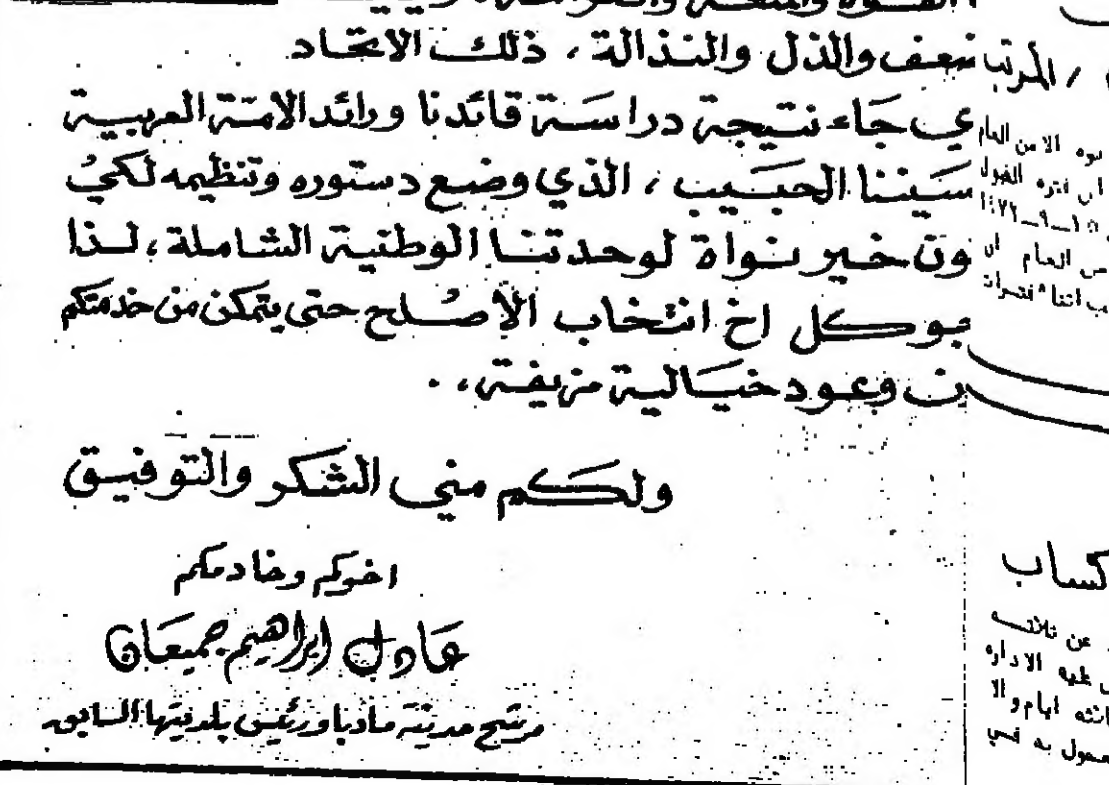 القوة والمنعة
ضعف والذل والنذالة ، ذلك الاتحاد
ي جاء نتيجة دراسة قائدنا ورائد الامة العربية
سيننا الحبيب ، الذي وضع دستوره وتنظيمه لكي
ون خير نواة لوحدتنا الوطنية الشاملة ، لذا
جو كل اخ انتخاب الأصلح حتى يتمكن من خدمتكم
ن وعود خيالية مزيفة ، .
ولكم مني الشكر والتوفيق
اخوكم وخادمكم
عادل ابراهيم جميعان
مرشح مدينة مادبا ورئيس بلديتها السابق
المرتب
الامن العام
القبول
العام
كساب
عن ثلاثة
الاداره
ايام والا